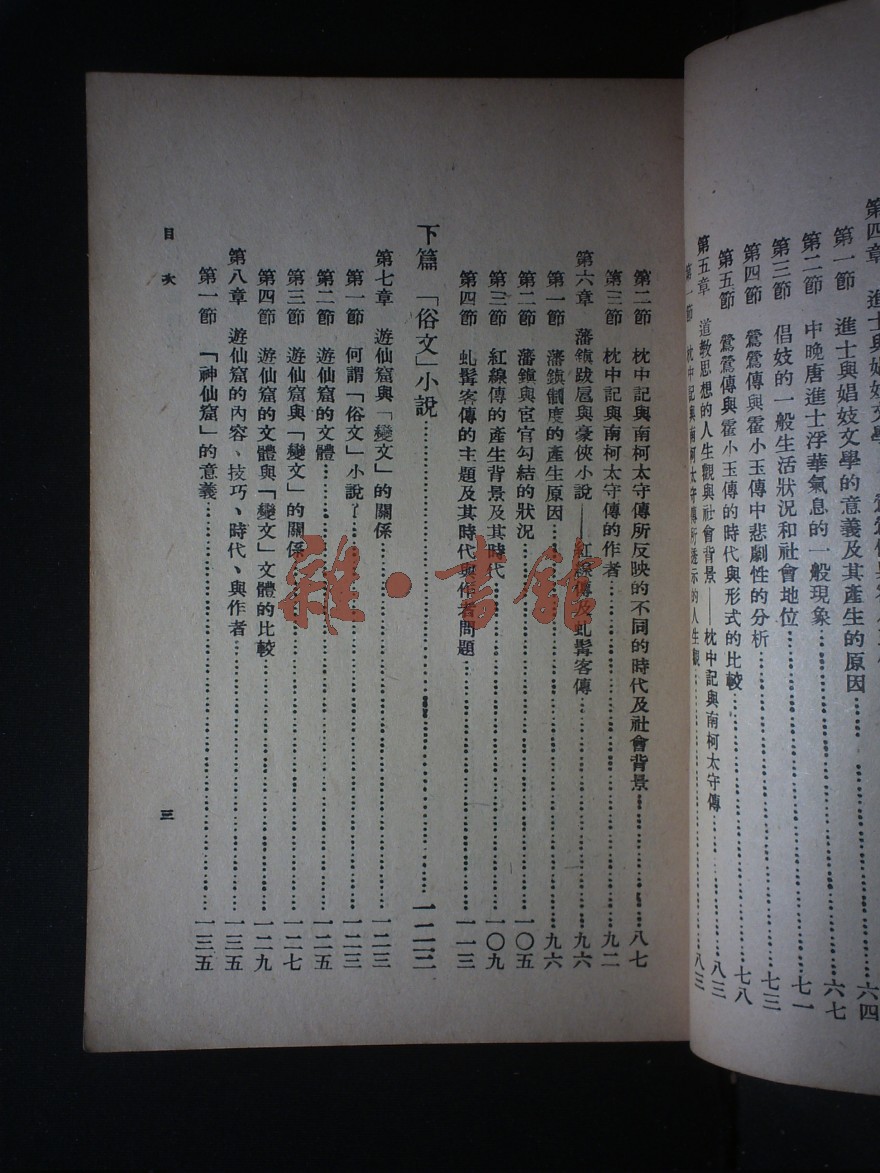 第四章 進士與娼妓文學
第一節 進士與娼妓文學的意義及其產生的原因……六四
第二節 中晚唐進士浮華氣息的一般現象……六七
第三節 倡妓的一般生活狀況和社會地位……七一
第四節 鶯鶯傳與霍小玉傳中悲劇性的分析……七三
第五節 鶯鶯傳與霍小玉傳的時代與形式的比較……七八
第五章 道教思想的人生觀與社會背景——枕中記與南柯太守傳……八三
第一節 枕中記與南柯太守傳所透示的人生觀……八三
第二節 枕中記與南柯太守傳所反映的不同的時代及社會背景……八七
第三節 枕中記與南柯太守傳的作者……九二
第六章 藩鎮跋扈與豪俠小說——紅線傳及虬髯客傳……九六
第一節 藩鎮制度的產生原因……九六
第二節 藩鎮與宦官勾結的狀況……一〇五
第三節 紅線傳的產生背景及其時代……一〇九
第四節 虬髯客傳的主題及其時代與作者問題……一一三
下篇 「俗文」小說……一二三
第七章 遊仙窟與「變文」的關係……一二三
第一節 何謂「俗文」小說……一二三
第二節 遊仙窟的文體……一二五
第三節 遊仙窟與「變文」的關係……一二七
第四節 遊仙窟的文體與「變文」文體的比較……一二九
第八章 遊仙窟的內容、技巧、時代、與作者……一三五
第一節 「神仙窟」的意義……一三五
目次 三
雜·書館